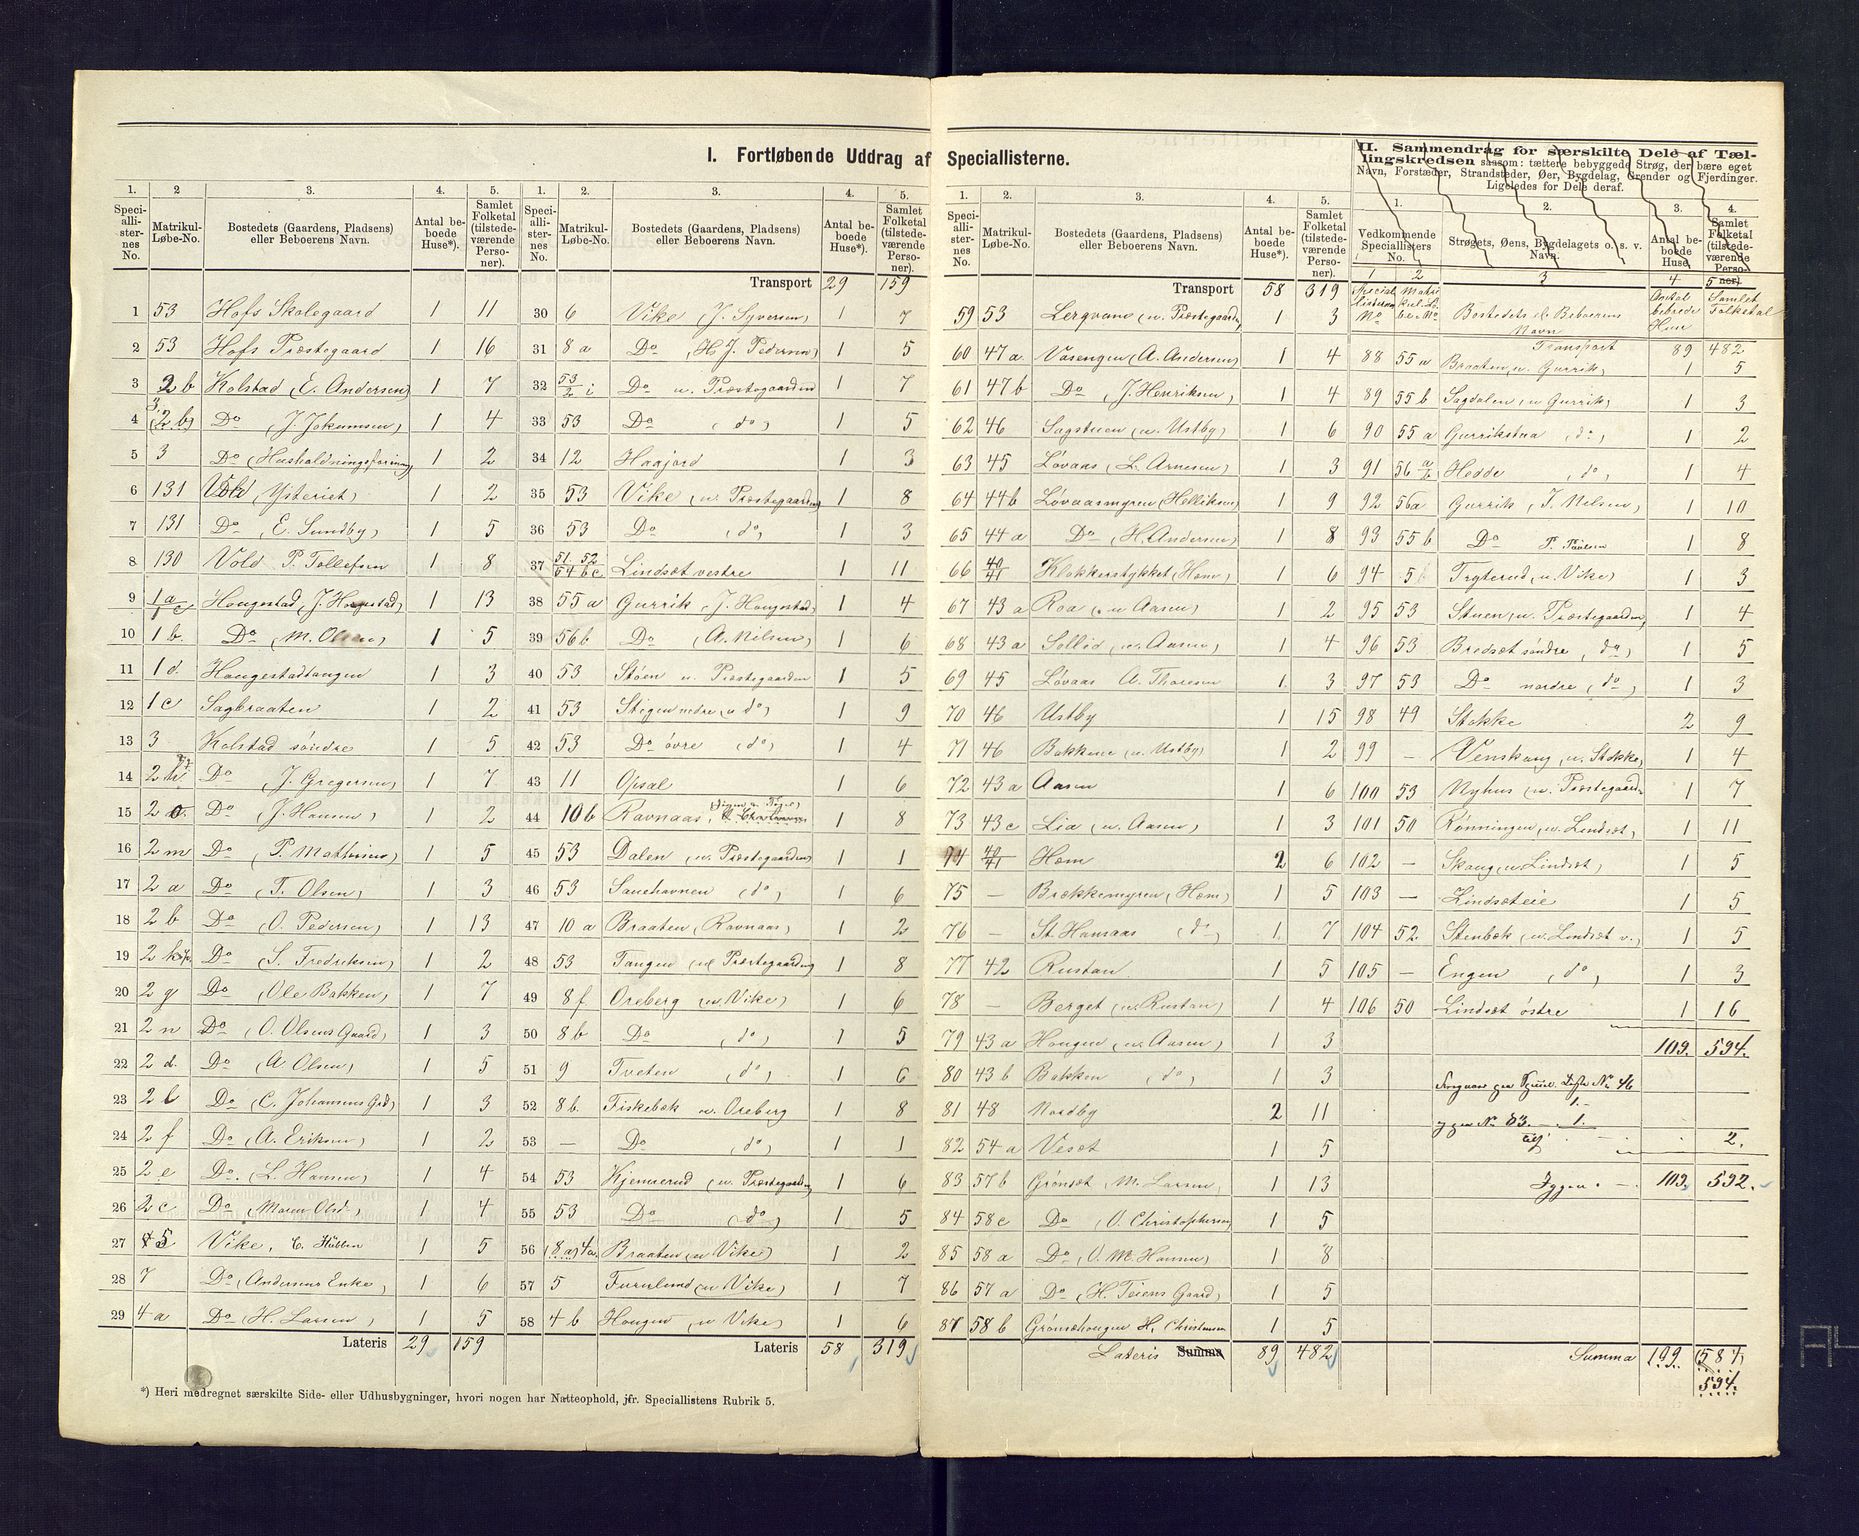 I. Fortløbende Uddrag af Speciallisterne.
1. 2. 3. 4. 5.
Speciallisternes No. Matrikul-Løbe-No. Bostedets (Gaardens, Pladsens) eller Beboerens Navn. Antal beboede Huse*). Samlet Folketal (tilstedeværende Personer).
1 53 Hofs Skolegaard 1 11
2 53 Hofs Præstegaard 1 16
3 2 b Kolstad (E. Andersen) 1 7
4 3. (2 b) Do (J. Jokumsen) 1 4
5 3 Do (Husholdningsforening) 1 2
6 131 Vold (Ysteriet) 1 2
7 131 Do (E. Sundby) 1 5
8 130 Vold P. Tollefsen 1 8
9 1a/1c Hougestad (J. Hougestad) 1 13
10 1 b. Do (M. Olsen) 1 5
11 1 d. Hougestadtangen 1 3
12 1 c Sagbraaten 1 2
13 3 Kolstad søndre 1 5
14 2 h Do (J. Gregersen) 1 7
15 2 o Do (J. Hansen) 1 2
16 2 m Do (P. Mathisen) 1 5
17 2 a Do (T. Olsen) 1 3
18 2 b Do (O. Pedersen) 1 13
19 2 k Do (S. Fredriksen) 1 2
20 2 g Do (Ole Bakken) 1 7
21 2 n Do (O. Olsens Gaard) 1 3
22 2 d. Do (A Olsen) 1 5
23 2 l Do (C. Johansens Grd) 1 3
24 2 f Do (A. Eriksen) 1 2
25 2 e Do. (L. Hansen) 1 4
26 2 c Do (Maren Olsd.) 1 4
27 5 Vike, C. Hübben 1 5
28 7 Do (Andersens Enke) 1 6
29 4 a Do (H. Larsen) 1 5
Lateris 29 159
*) Heri medregnet særskilte Side- eller Udhusbygninger, hvori nogen har Natteophold, jfr. Speciallistens Rubrik 5.
1. 2. 3. 4. 5.
Speciallisternes No. Matrikul-Løbe-No. Bostedets (Gaardens, Pladsens) eller Beboerens Navn. Antal beboede Huse*). Samlet Folketal (tilstedeværende Personer).
Transport 29 159
30 6 Vike (J. Syversen) 1 7
31 8 a Do (H J. Pedersen) 1 5
32 53/2 i Do u. Præstegaarden 1 7
33 53 Do (do) 1 5
34 12 Haajord 1 3
35 53 Vike (u. Præstegaarden) 1 8
36 53 Do (do) 1 3
37 51 52/54 b c Lindsæt vestre 1 11
38 55 a Gurrik (J. Hougestad) 1 4
39 56 b Do (A. Nilsen) 1 6
40 53 Støen u. Præstegaarden 1 5
41 53 Stigen nedre (u do) 1 9
42 53 Do øvre (do) 1 4
43 11 Opsal 1 6
44 10 b Ravnaas, 1 8
45 53 Dalen (u. Præstegaarden) 1 1
46 53 Sauehavnen (do) 1 6
47 10 a Braaten (Ravnaas) 1 2
48 53 Tangen (u Præstegaarden) 1 8
49 8 f Oreberg (u Vike) 1 6
50 8 b Do (do) 1 5
51 9 Tveten (do) 1 6
52 8 b. Fiskebæk u. Oreberg 1 8
53 — Do (do) 1 1
54 53 Kjennerud (u. Præstegaarden) 1 6
55 53 Do (do) 1 5
56 (8 a) 4 a. Braaten (u Vike) 1 2
57 5 Furulund (u Vike) 1 7
58 4 b Hougen (u Vike) 1 6
Lateris 58 319
1. 2. 3. 4. 5.
Speciallisternes No. Matrikul-Løbe-No. Bostedets (Gaardens, Pladsens) eller Beboerens Navn. Antal beboede Huse*). Samlet Folketal (tilstedeværende Personer).
Transport 58 319
59 53 Lergvam (u. Præstegaarden) 1 3
60 47 a Vasengen (A. Andersen) 1 4
61 47 b Do (J. Henriksen) 1 4
62 46 Sagstuen (u. Ustby) 1 6
63 45 Løvaas (L. Arnesen) 1 3
64 44 b Løvaasmyren (Helliksen) 1 9
65 44 a Do (H. Andersen) 1 8
66 40/41 Klokkerstykket (Hæm) 1 6
67 43 a Roa (u Aasen) 1 2
68 43 a Sollid (u. Aasen) 1 4
69 45 Løvaas A. Thoresen 1 3
70 46 Ustby 1 15
71 46 Bakkene (u. Ustby) 1 2
72 43 a Aasen 1 6
73 43 c Lia (u. Aasen) 1 3
74 40/41 Hæm 2 6
75 — Brækkemyren (Hæm) 1 5
76 — St. Hansaas (do) 1 7
77 42 Rustan 1 5
78 — Berget (u. Rustan) 1 4
79 43 a Hougen (u. Aasen) 1 3
80 43 b Bakken (do) 1 3
81 48 Nordby 2 11
82 54 a Vesæt 1 5
83 57 b Grønsæt M. Larsen 1 13
84 58 c Do (O. Christophersen) 1 5
85 58 a Do (O. M. Hansen) 1 8
86 57 a Do (H. Teiens Gaard) 1 5
87 58 b Grønsæthougen H. Christensen 1 5
Lateris Summa 89 482
II. Sammendrag for særskilte Dele af Tællingskredsen saasom: tættere bebyggede Strøg, der bære eget Navn, Forstæder, Strandsteder, Øer, Bygdelag, Grender og Fjerdinger. Ligeledes for Dele deraf.
1. 2. 3. 4.
Vedkommende Speciallisters No. Strøgets, Øens, Bygdelagets o. s. v. Navn. Antal beboede Huse. Samlet Folketal (tilstedeværende Personer).
1 2 3 4 5
Speciallisternes No Matrikel-Løbe-No Bostedets el. Beboerens Navn Antal bebode Huse Samlet Folketal
Transport 89 482
88 55 a Braaten u. Gurrik) 1 5
89 55 b Sagdalen (u Gurrik) 1 3
90 55 a Gurrikstua (do) 1 2
91 56 a/b Hedde (do) 1 4
92 56a Gurrik (T. Nilsen) 1 10
93 55 b Do P. Paulsen 1 8
94 5 Tryterud (u. Vike) 1 3
95 53 Stuen (u. Præstegaarden) 1 4
96 53 Bredsæt søndre (do) 1 5
97 53 Do nordre (do) 1 3
98 49 Stokke 2 9
99 — Venskaug (u. Stokke) 1 4
100 53 Nyhus (u. Præstegaarden 1 7
101 50 Rønningen (u. Lindsæt) 1 11
102 — Skaug (u Lindsæt) 1 5
103 — Lindsæteie 1 5
104 52 Stenbæk (u. Lindsæt v.) 1 5
105 — Engen (do) 1 3
106 50 Lindsæt østre 1 16
109. 594.
No 46 1.-
No 83. — 1.
2.
Igjen. - 109. 592.
Summa 109. (587)
594.